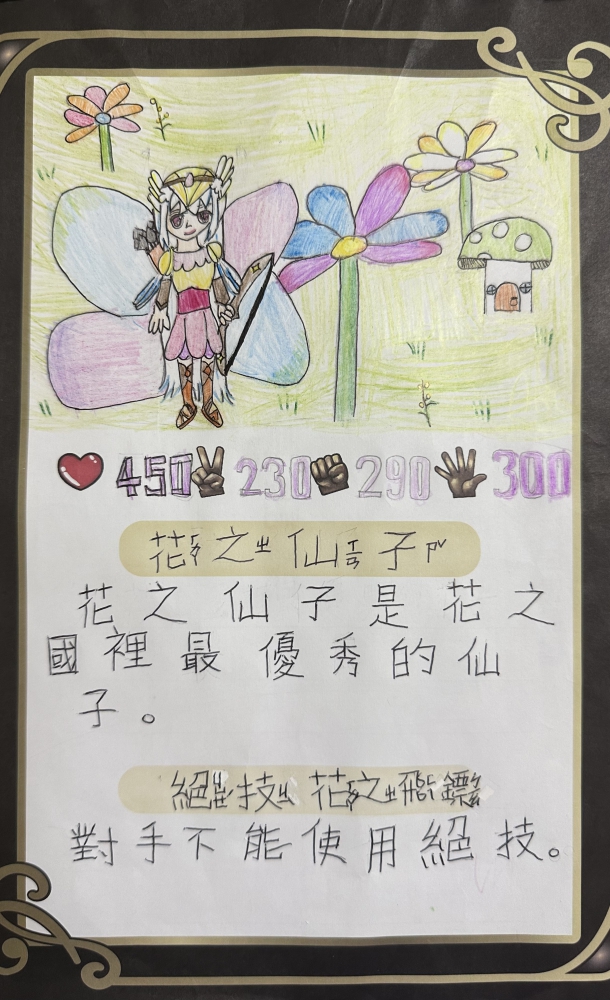 450 230 290 300
花之仙子
花之仙子是花之
國裡最優秀的仙
子。
絕技 花之飛鏢
對手不能使用絕技。